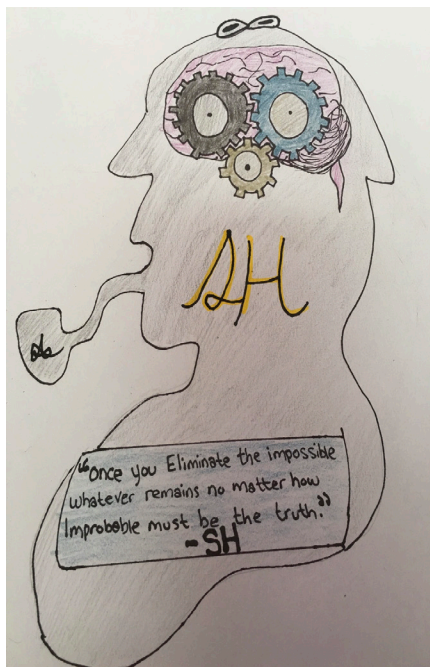 SH
“Once you Eliminate the impossible
whatever remains no matter how
Improbable must be the truth.”
- SH